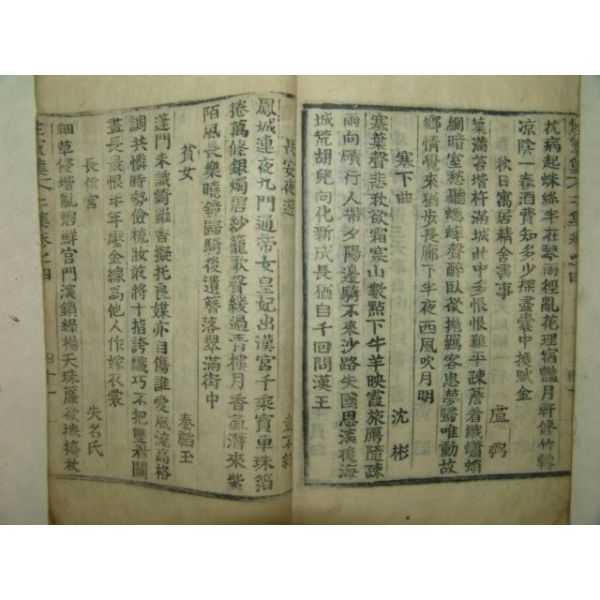 抗病起蛛絲半在琴雨徑亂花埋宿艷月軒修竹轉
凉陰一春酒費知多少探盡囊中換賦金
秋日寓居精舍書事 盧弼
葉滿苔堦杵滿城此中多恨恨難平疎簷看織蠨蛸
網暗室愁聽蟋蟀聲醉臥欲抛羇客思夢歸唯動故
鄉情覺來猶步長廊下半夜西風吹月明
塞下曲 沈彬
塞葉聲悲秋欲霜寒山數點下牛羊映霞旅鴈隨疎
雨向磧行人帶夕陽邊騎不來沙路失國恩深後海
城荒胡兒向化新成長猶自千回問漢王
長安夜遊 袁不約
鳳城連夜九門通帝女皇妃出漢宮千乘寶車珠箔
捲萬條銀燭碧紗籠歌聲緩過青樓月香氣潛來紫
陌風長樂曉鐘歸騎後遺簪落翠滿街中
貧女 秦韜玉
蓬門未識綺羅香擬托良媒亦自傷誰愛風流高格
調共憐時勢儉梳妝敢將十指誇纖巧不把雙眉鬪
畫長最恨年年壓金線爲他人作嫁衣裳
長信宮 失名氏
細草侵堦亂碧鮮宮門深鎖綠楊天珠簾欲捲擡秋
集卷之四 四十一